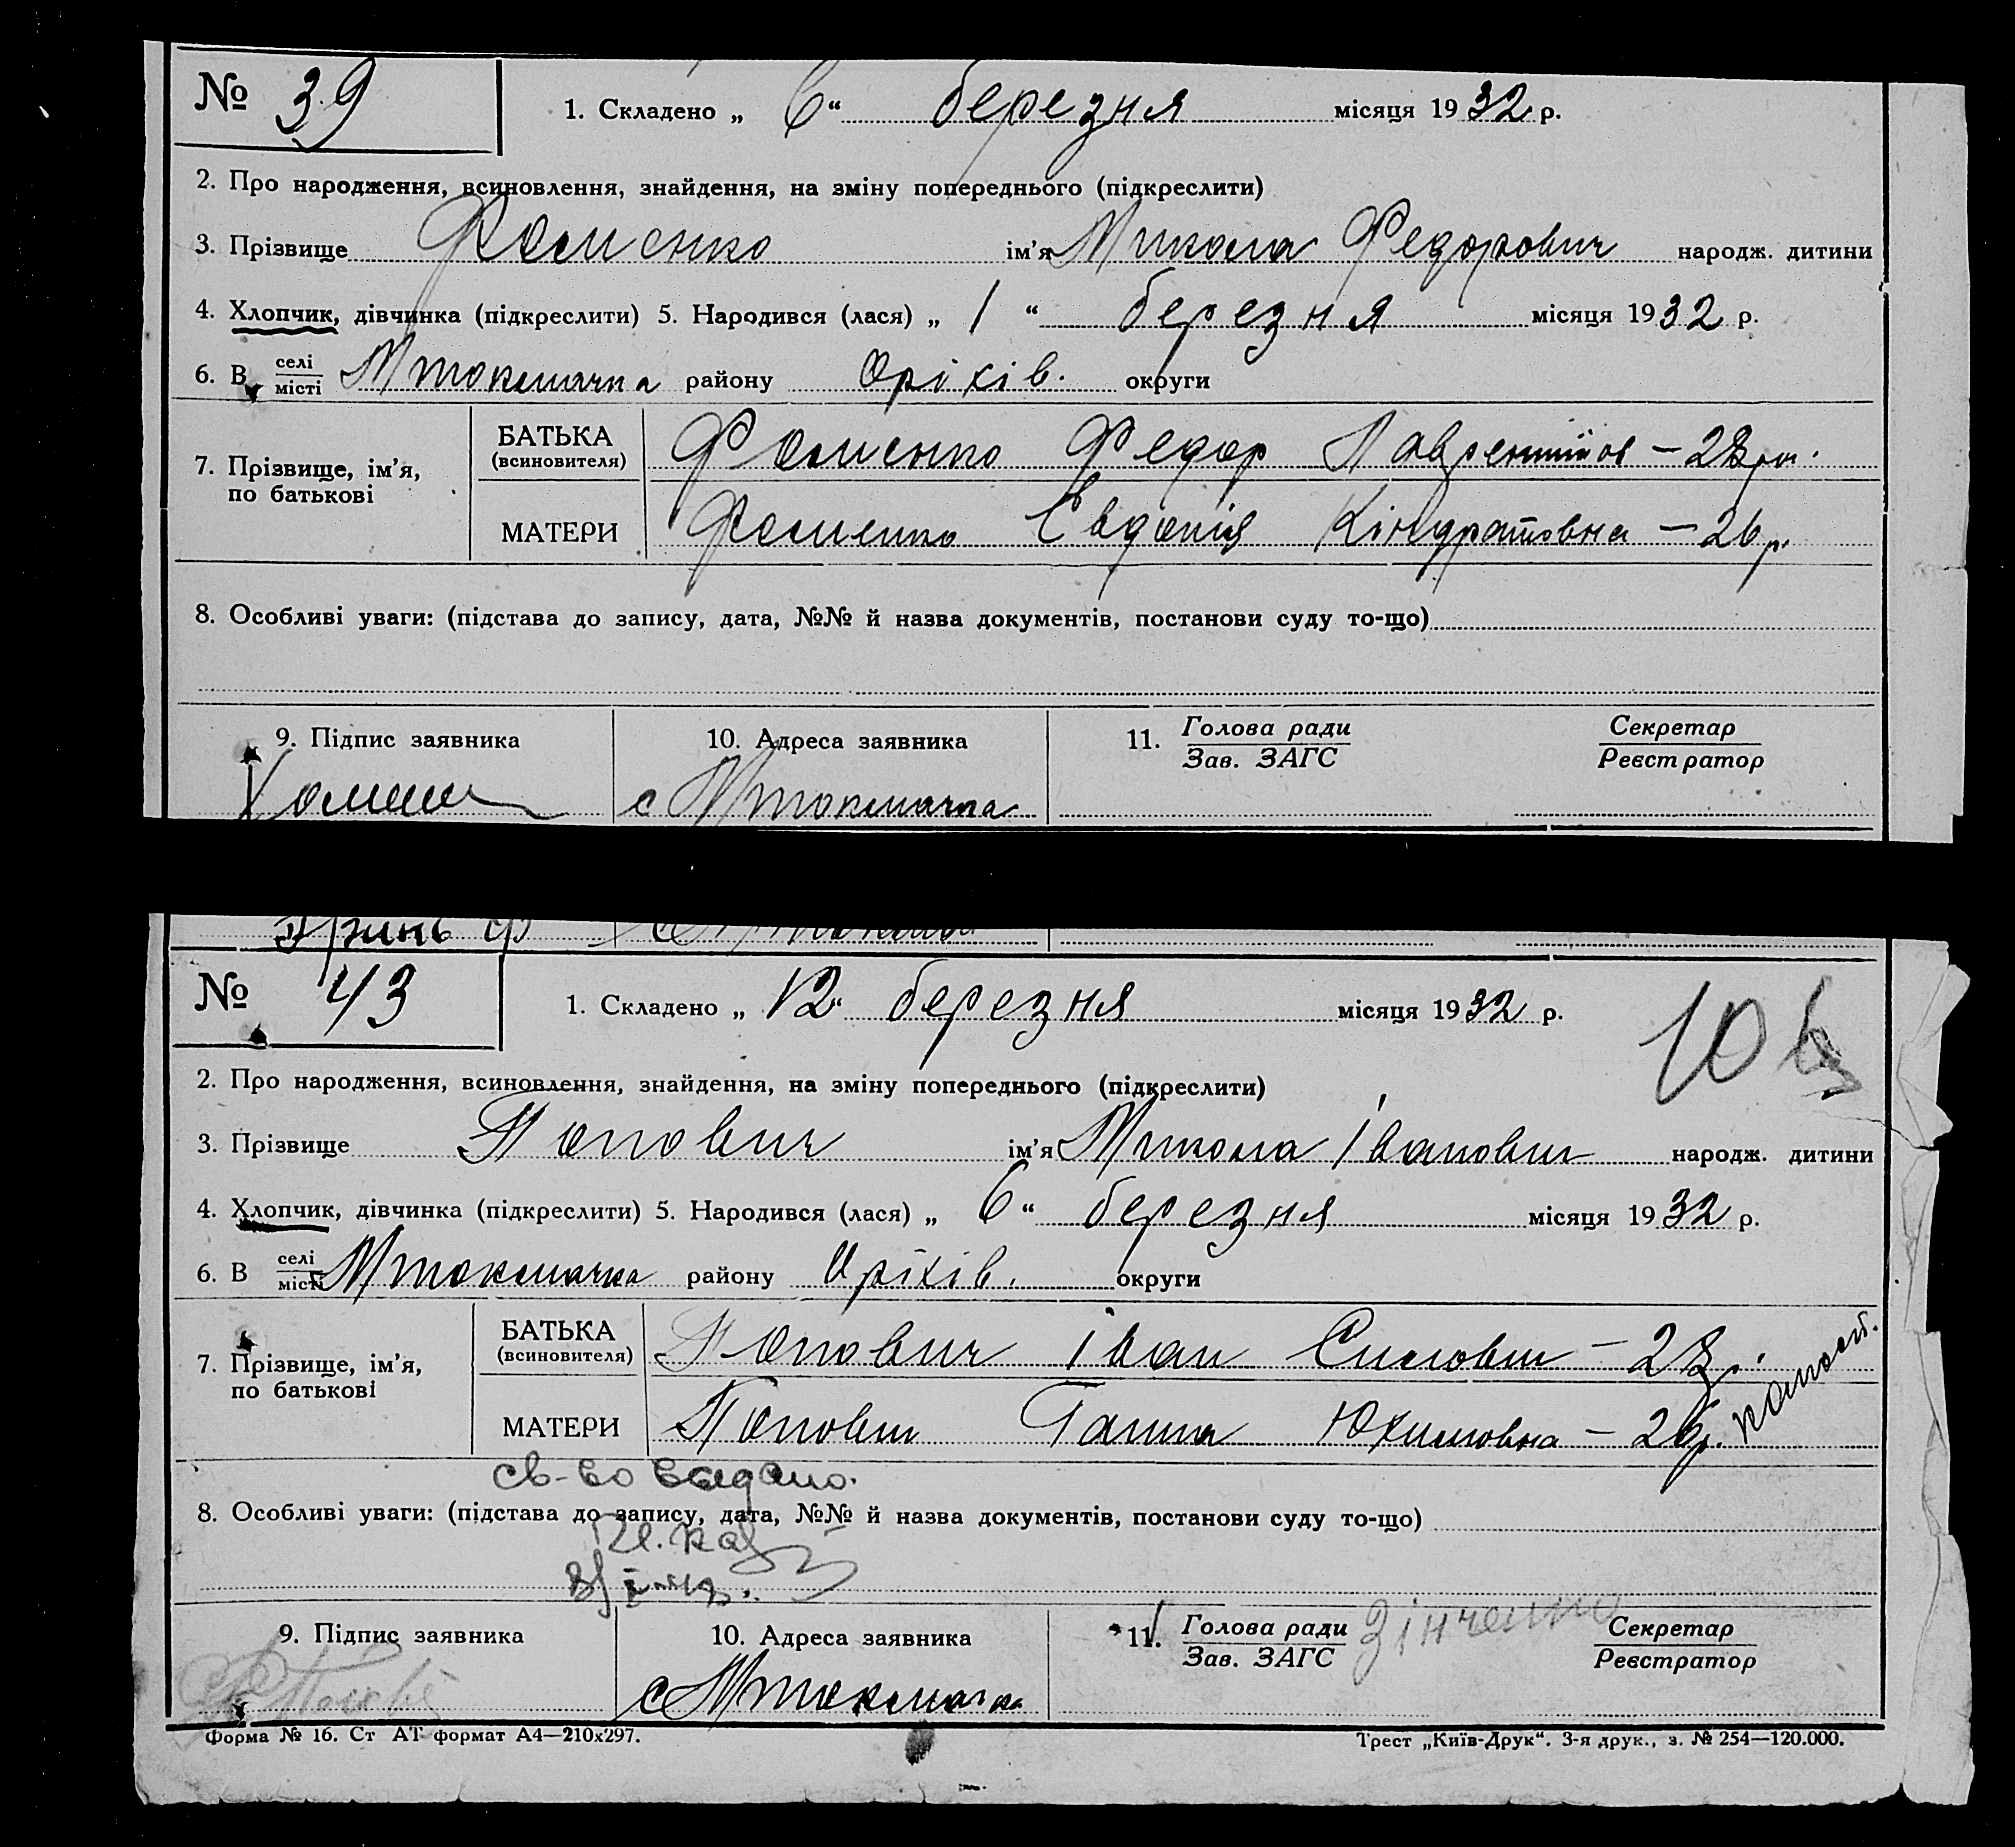 № 39
1. Складено „ 6 “ березня місяця 1932 р.
2. Про народження, всиновлення, знайдення, на зміну попереднього (підкреслити)
3. Прізвище Фоменко ім’я Микола Федорович народж. дитини
4. Хлопчик, дівчинка (підкреслити) 5. Народився (лася) „ 1 “ березня місяця 1932 р.
6. В селі місті Мтокмачка району Оріхів. округи
7. Прізвище, ім’я, по батькові
БАТЬКА (всиновителя) Фоменко Федор
МАТЕРИ Фоменко Євдокія Кіндратовна — 26 р.
8. Особливі уваги: (підстава до запису, дата, №№ й назва документів, постанови суду то-що)
9. Підпис заявника
10. Адреса заявника
11. Голова ради Зав. ЗАГС
Секретар Реєстратор
с Мтокмачка
№ 43
1. Складено „ 12 “ березня місяця 1932 р.
2. Про народження, всиновлення, знайдення, на зміну попереднього (підкреслити)
3. Прізвище Попович ім’я Микола Іванович народж. дитини
4. Хлопчик, дівчинка (підкреслити) 5. Народився (лася) „ 6 “ березня місяця 1932 р.
6. В селі місті Мтокмачка району Оріхів. округи
7. Прізвище, ім’я, по батькові
БАТЬКА (всиновителя) Попович Іван
МАТЕРИ Попович Ганна Юхимовна — 26 р.
св-во выдано.
8. Особливі уваги: (підстава до запису, дата, №№ й назва документів, постанови суду то-що)
9. Підпис заявника
10. Адреса заявника
11. Голова ради Зав. ЗАГС Зінченко
Секретар Реєстратор
с Мтокмачка
Форма № 16. Ст АТ формат А4—210х297.
Трест „Київ-Друк“. 3-я друк., з. № 254—120.000.